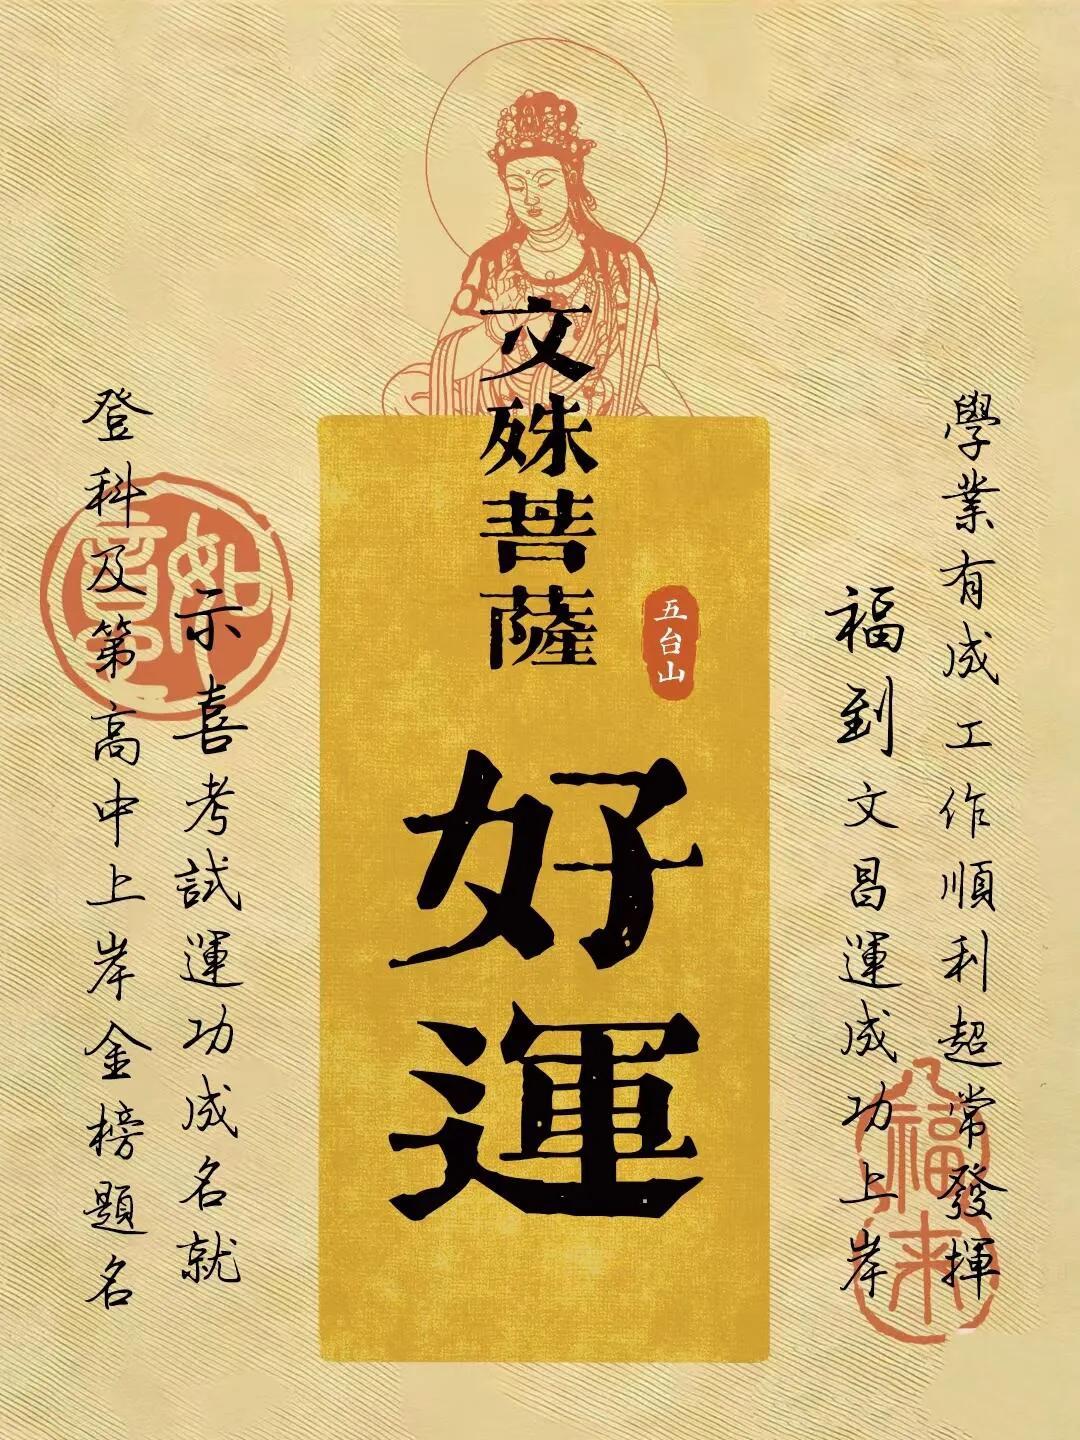 文殊菩薩
五台山
好運
學業有成工作順利超常發揮
福到文昌運成功上岸
示喜考試運功成名就
登科及第高中上岸金榜題名
福来